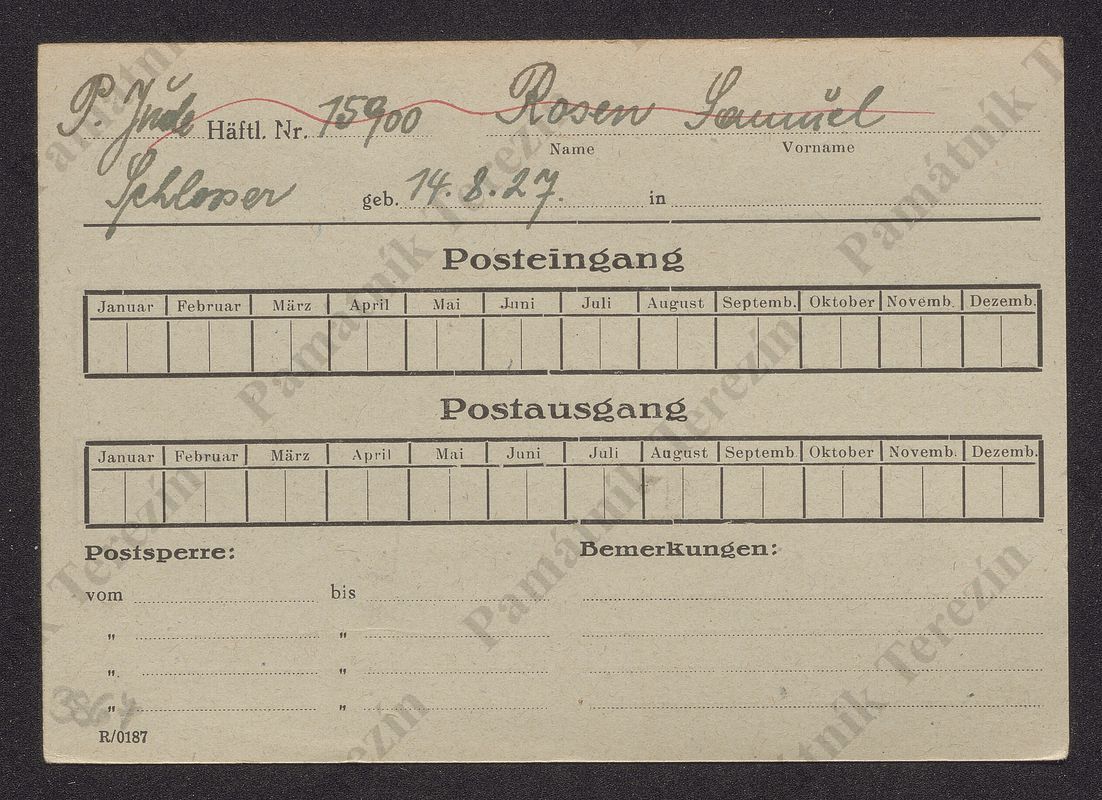 P. Jude Häftl. Nr. 15900 Rosen Samuel
Name Vorname
Schlosser geb. 14.8.27. in
Posteingang
Januar Februar März April Mai Juni Juli August Septemb. Oktober Novemb. Dezemb.
Postausgang
Januar Februar März April Mai Juni Juli August Septemb. Oktober Novemb. Dezemb.
Postsperre: Bemerkungen:
vom bis
" "
". "
" "
3864
R/0187
Památník Terezín
Památník Terezín
Památník Terezín
Památník Terezín